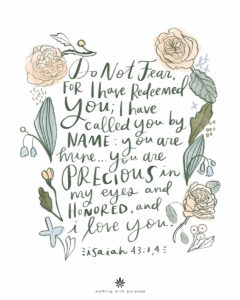 Do Not Fear,
FOR I have Redeemed
You; I have
called you by
NAME: you are
mine... you are
PRECIOUS in
my eyes and
HONORED, and
i love you.
isaiah 43:1,4
working with purpose